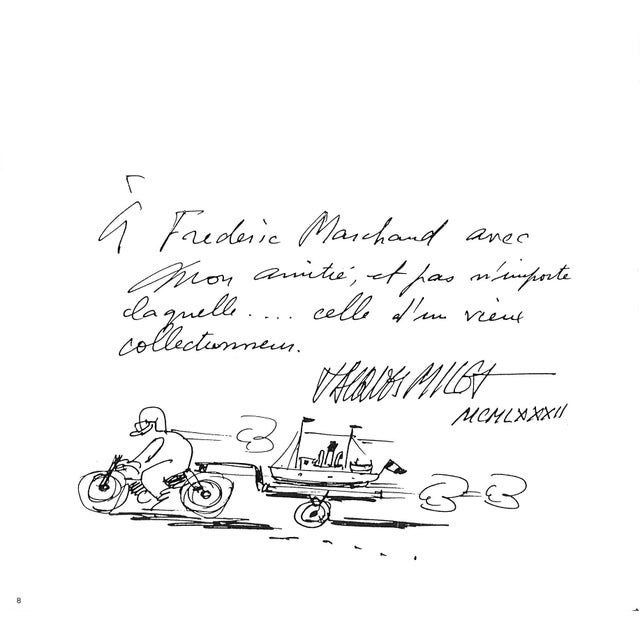 À Frédéric Marchand avec
mon amitié, et pas n'importe
laquelle.... celle d'un vieux
collectionneur.
JACQUES MILOT
MCMLXXXII
8